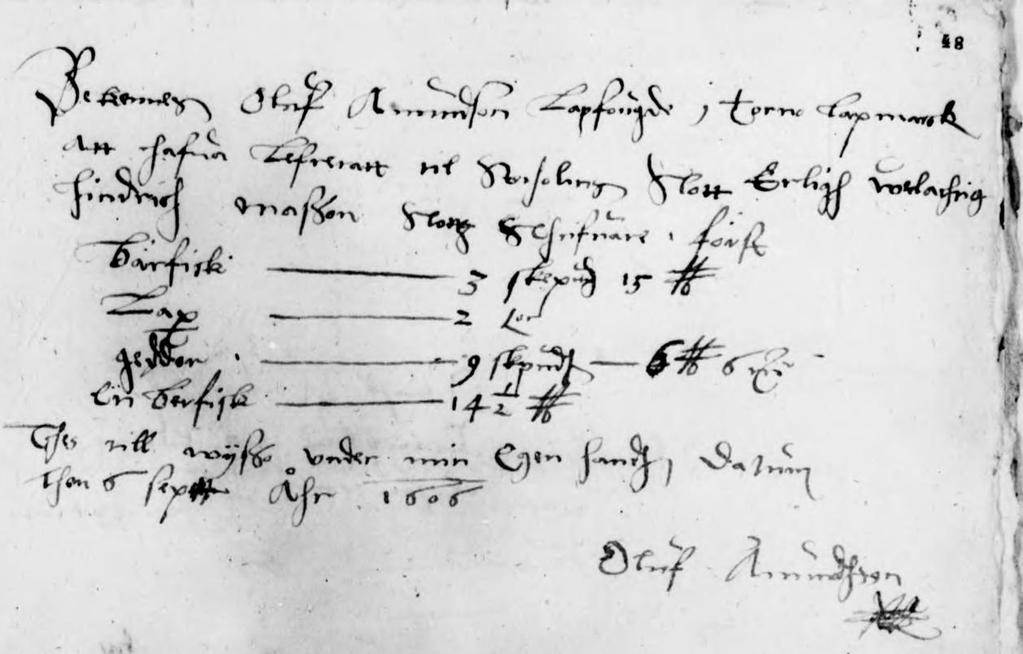 48
Bekennes Oluf Amundson Lapfougde j Torne Lapmarck
Att hafua Lefreratt til Slott Erligh welachtig
Hindrich Matzson Slotz Schrifuare, först
Bärfisk 3 skepund 15 ℔
Lax 2
geddor 9 skpund 6 ℔ 6
Lin bärfisk 14 1/2 ℔
Thes till wysso vnder min Egen handh, Datum
then 6 sept Åhr 1606
Oluf Amundhson